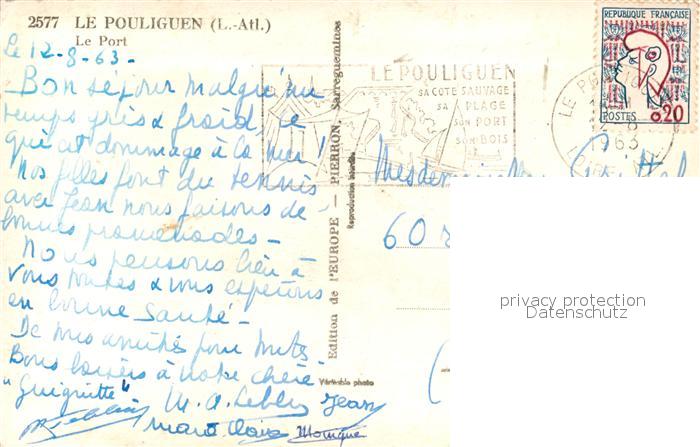 2577 LE POULIGUEN (L.-Atl.)
Le Port
Le 12-8-63-
Bon séjour malgré un
temps gris & froid, ce
qui est dommage à la mer!
Nos filles font du tennis
avec Jean nous faisons de
bonnes promenades-
Nous pensons bien à
vous toutes & vous espérons
en bonne santé-
De mes amitiés pour
Bons baisers à notre chère
"Guiguitte"
M. A. Leblin Jean
Marie Claire Monique
Edition de l'EUROPE - PIERRON, Sarreguemines
Reproduction interdite
Véritable photo
LE POULIGUEN
SA COTE SAUVAGE
SA PLAGE
SON PORT
SON BOIS
REPUBLIQUE FRANÇAISE
POSTES 0,20
LE
1963
LOIRE
Mesdemoiselles
60
privacy protection
Datenschutz